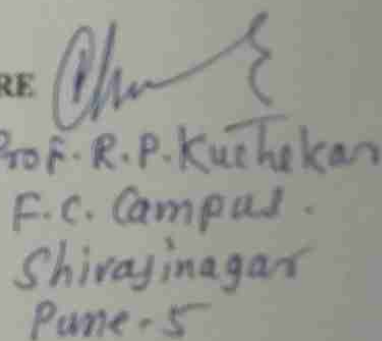 RE
Prof. R. P. Kuchekar
F. C. Campus.
Shivajinagar
Pune - 5